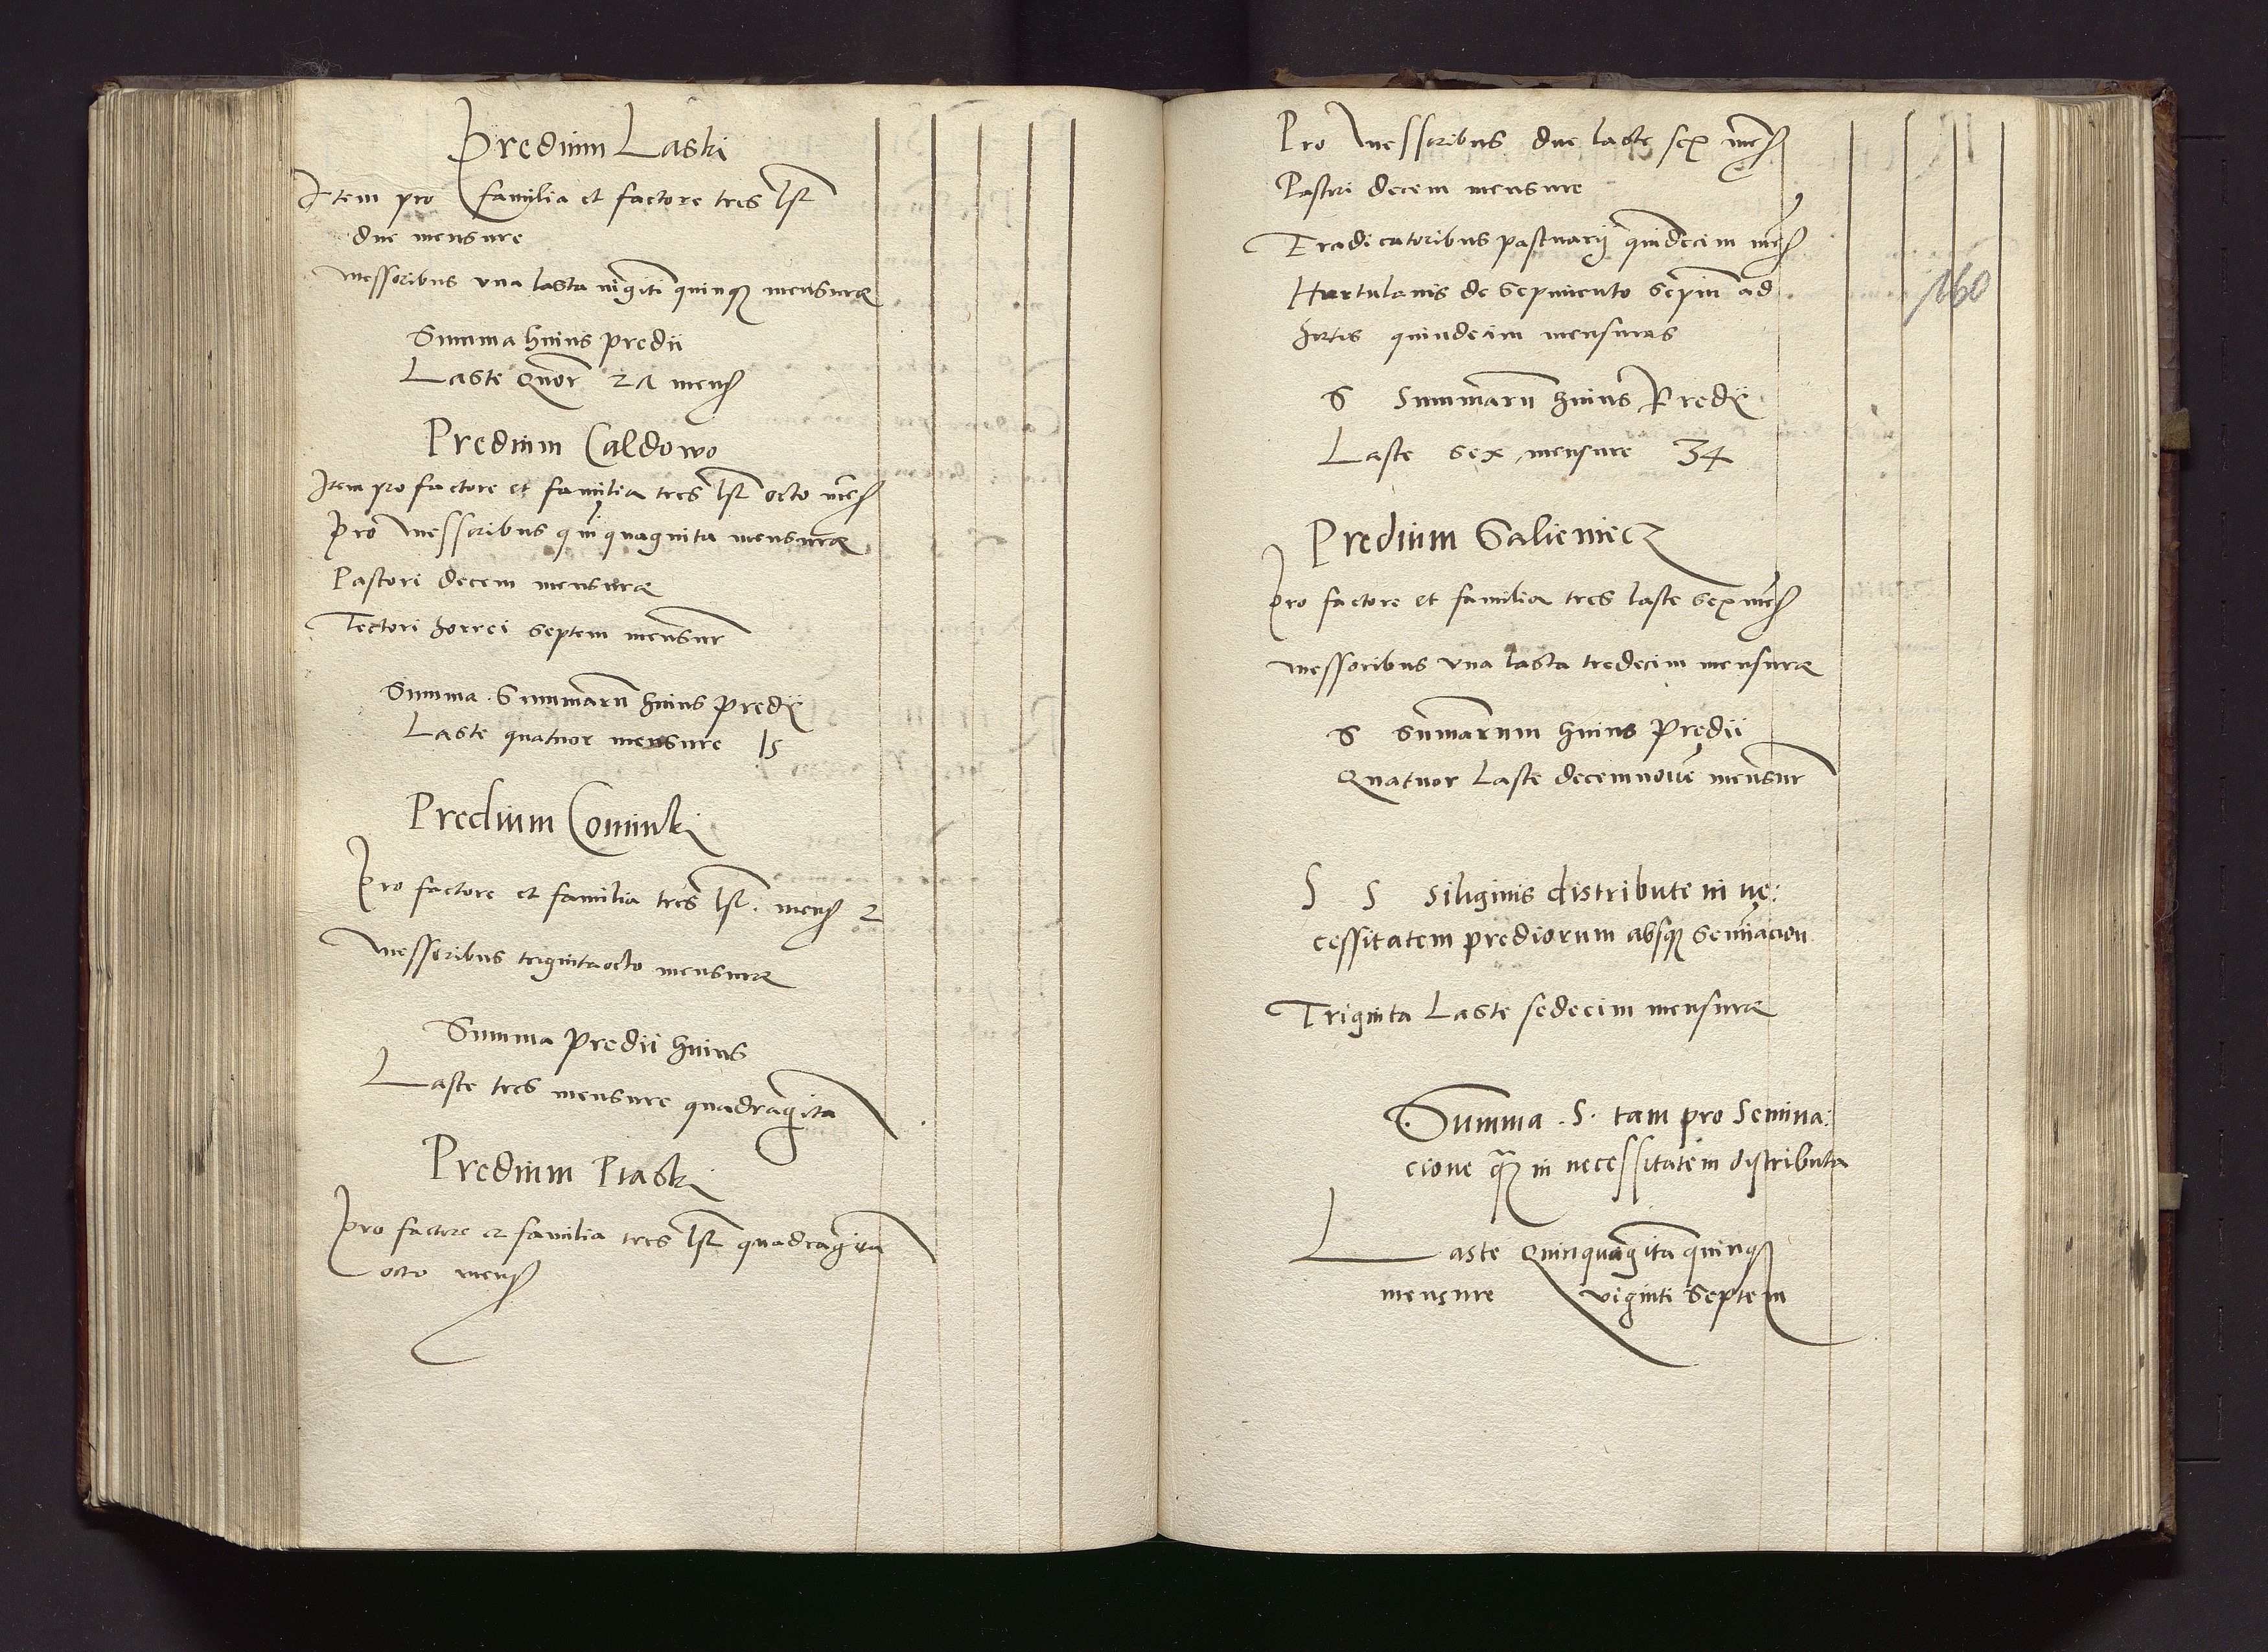 Predium Laski
Item pro familia et factore tres lst
due mensure
messoribus vna lasta viginti quinqz mensuræ
Summa huius predii
Laste quor 27 mens
Predium Caldowo
Item pro factore et familia tres lst octo mens
Pro messoribus quinquaginta mensuræ
Pastori decem mensuræ
Tectori horrei septem mensur
Summa Summaru huius predy
Laste quatuor mensure 15
Predium Cominki
Pro factore et familia tres lst. mens 2
messoribus trigintaocto mensuræ
Summa predii huius
Laste tres mensure quadraginta
Predium Piaski
Pro factore et familia tres lst quadraginta
octo mens
Pro messoribus due laste sex mens
Pastori decem mensure
Eradicatoribus pastuarij quindecim mens
160
Hurtulanis de sepimento sepium ad
hortis quindecim mensuras
S Summaru huius Predy
Laste sex mensure 34
Predium Salieniecz
Pro factore et familia tres laste sex mens
messoribus vna lasta tredecim mensuræ
S Sumarum huius Predii
Quatuor laste decemnoue mensur
S S siliginis distribute in ne:
cessitatem prediorum absqz seminacion
Triginta Laste sedecim mensuræ
Summa .S. tam pro semina:
cione qz in necessitatem distributa
Laste Quinquaginta quinqz
mensure viginti septem